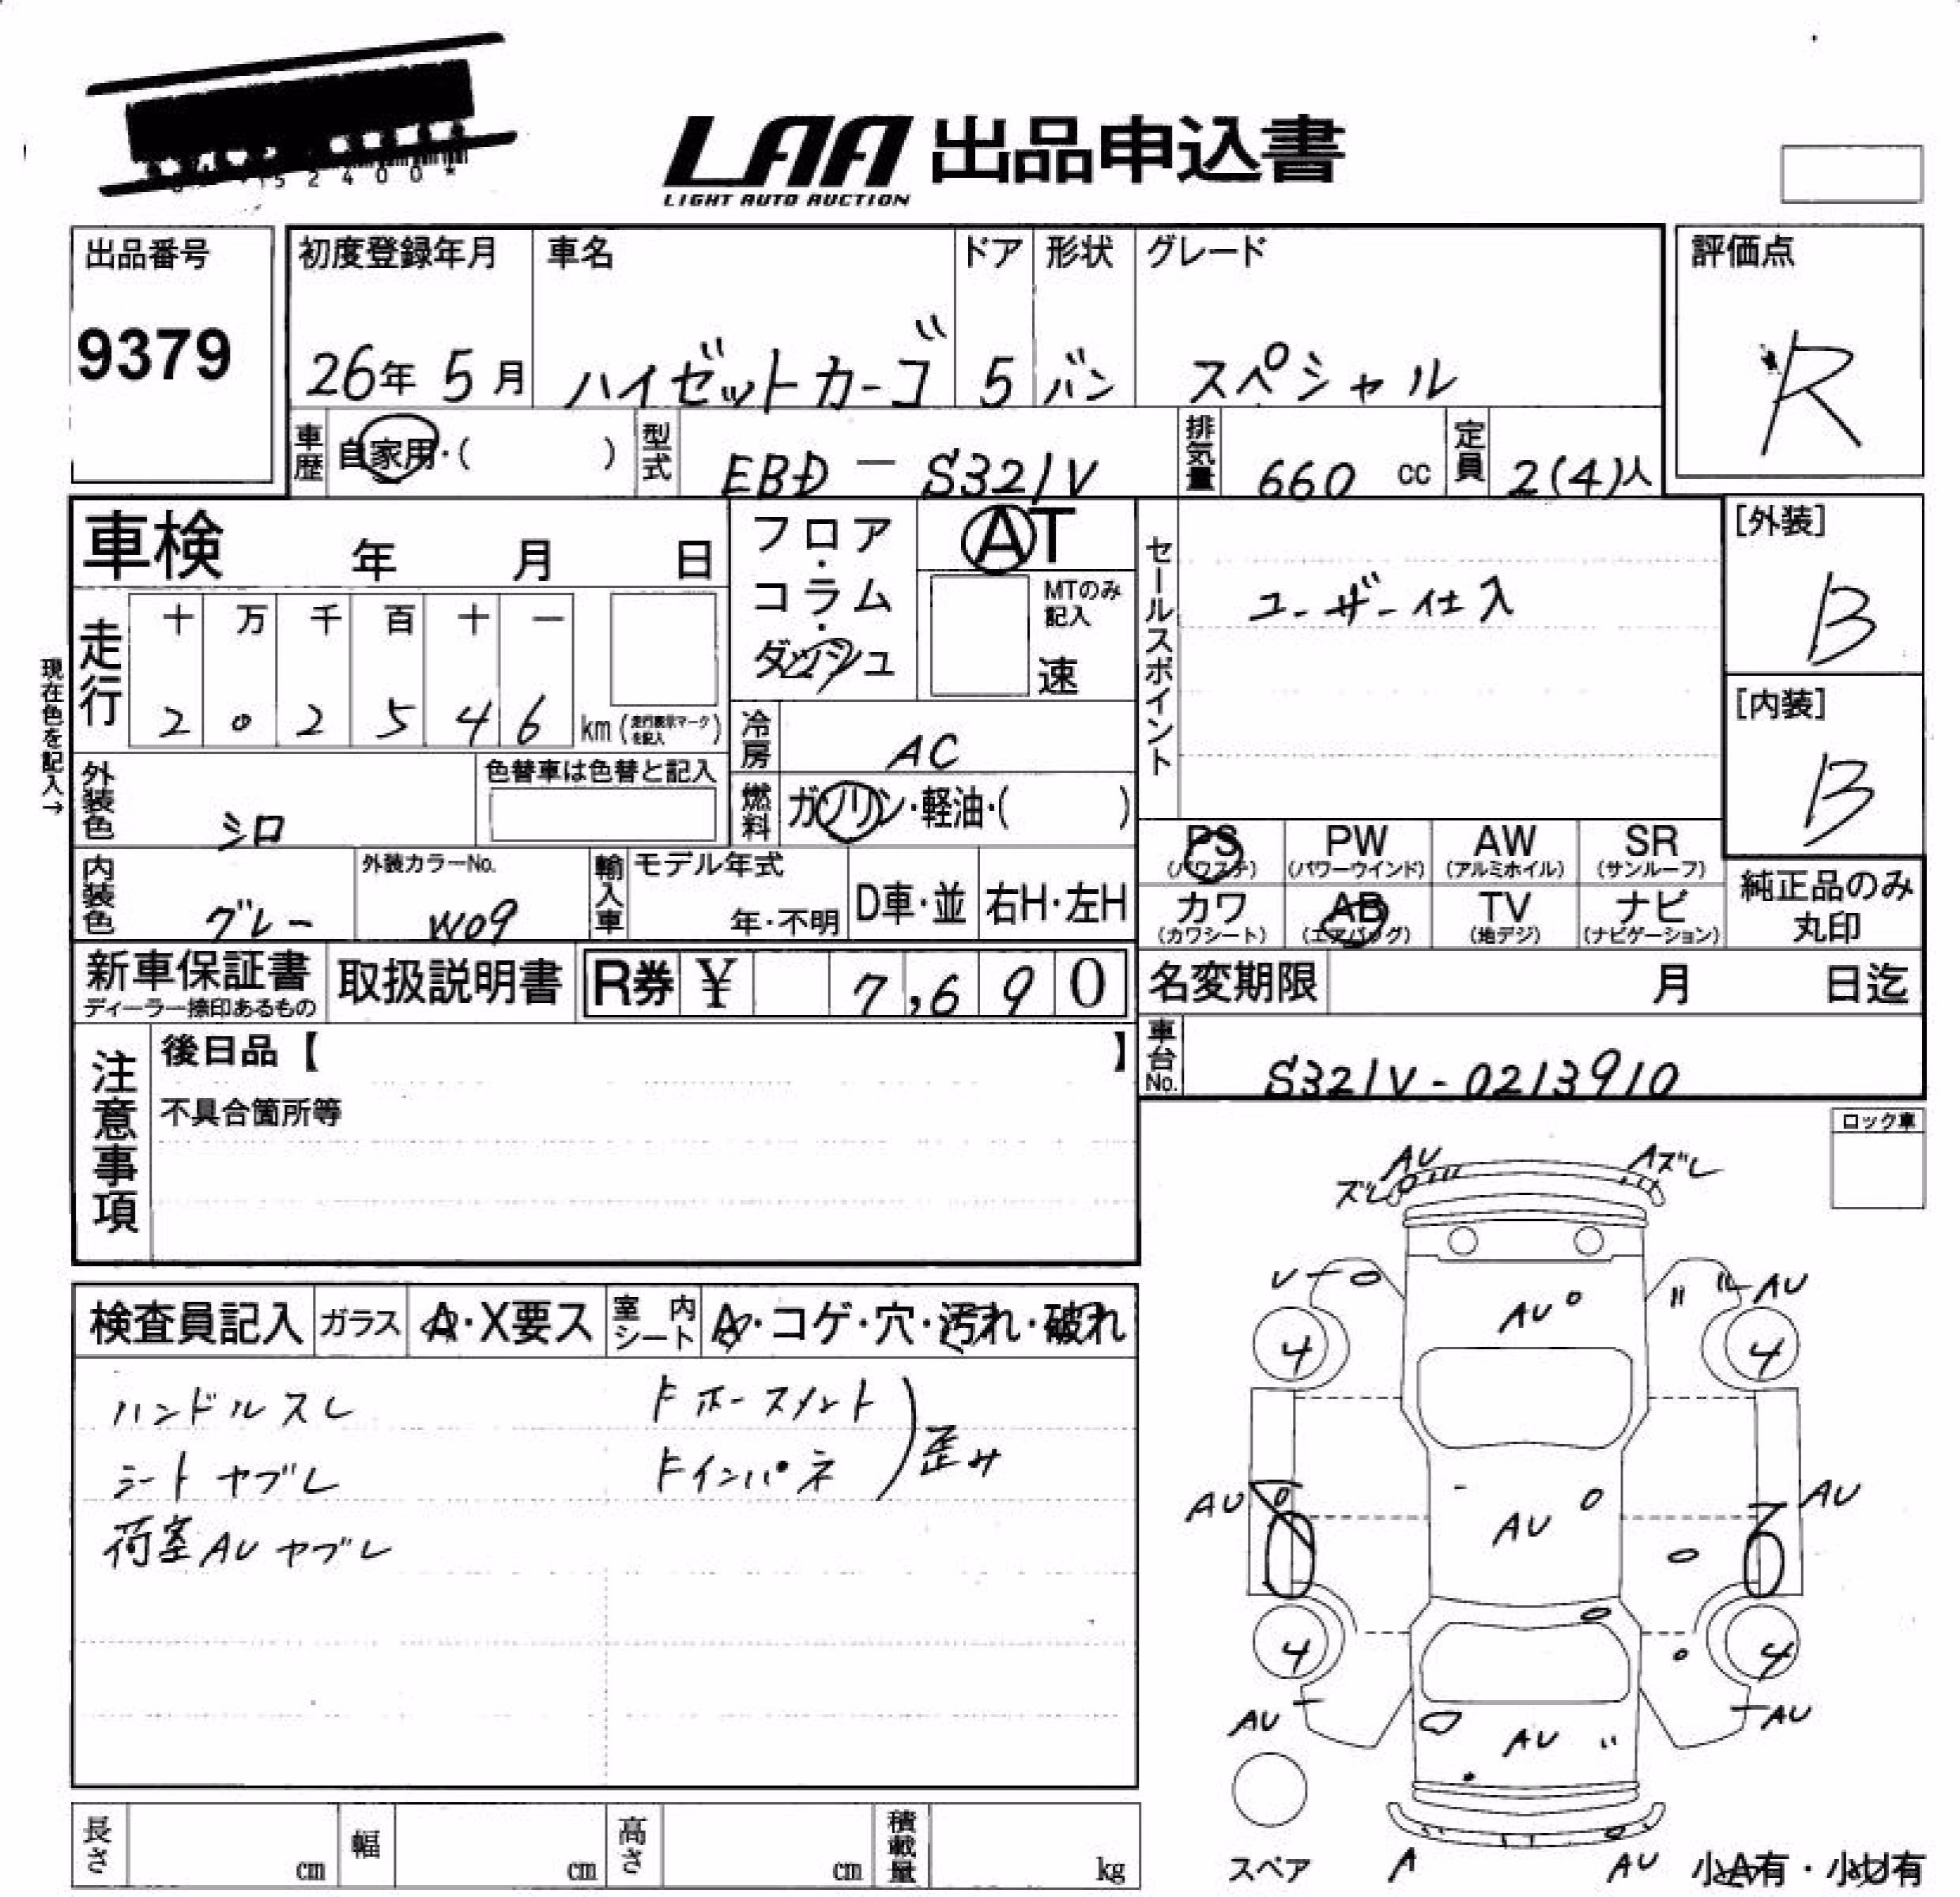 52400*
LAA 出品申込書
LIGHT AUTO AUCTION
出品番号 初度登録年月 車名 ドア 形状 グレード 評価点
9379 26年 5月 ハイゼットカーゴ 5 バン スペシャル R
車歴 自家用・( ) 型式 EBD-S321V 排気量 660 cc 定員 2(4)人
車検 年 月 日 フロア・コラム・ダッシュ AT セールスポイント [外装]
MTのみ記入 速 ユーザー仕入 B
走行 十 万 千 百 十 一
2 0 2 5 4 6 km (走行表示マークを記入) [内装]
現在色を記入→
冷房 AC B
外装色 シロ 色替車は色替と記入 燃料 ガソリン・軽油・( )
PS (パワステ) PW (パワーウインド) AW (アルミホイル) SR (サンルーフ)
内装色 グレー 外装カラーNo. W09 輸入車 モデル年式 年・不明 D車・並 右H・左H
カワ (カワシート) AB (エアバッグ) TV (地デジ) ナビ (ナビゲーション) 純正品のみ丸印
新車保証書 ディーラー捺印あるもの 取扱説明書 R券 ¥ 7,690 名変期限 月 日迄
注意事項 後日品【 】 車台No. S321V-0213910
不具合箇所等 ロック車
AU Aズレ
ズレ
U AU
AU
4 4
検査員記入 ガラス A・X要ス 室内シート A・コゲ・穴・汚れ・破れ
ハンドルスレ Fホースメント
シートヤブレ Fインパネ 歪み
荷室AUヤブレ
AU AU AU
4 4
AU AU
AU
長さ cm 幅 cm 高さ cm 積載量 kg
スペア A AU 小A有・小U有